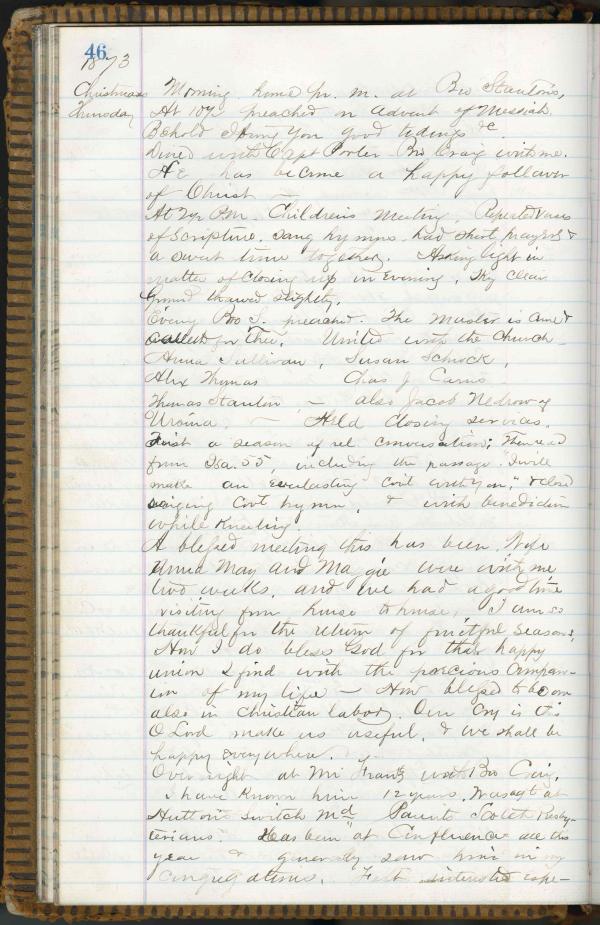 46
1873
Christmas Morning home pr. m. at Bro Stanton's,
Thursday At 10½ preached on Advent of Messiah
Behold I bring you good tidings &c
Dined with Capt Porter Bro Craig with me.
He has become a happy follower
of Christ —
At 2½ P.M. Children's Meeting. Repeated verses
of Scripture, sang hymns had short prayers &
a sweet time together. Asking light in
matter of closing up in Evening. Sky clear
Ground thawed slightly.
Eveng Bro S. preached. The Master is come &
calleth for Thee. United with the Church
Anna Sullivan, Susan Schrock,
Alex Thomas Chas J.
Thomas Stanton, — also Jacob Nedrow of
Ursina. — Held closing services.
First a season of rel. conversation; Then read
from Isa. 55, including the passage "I will
make an everlasting Covt with you," & closed
singing Covt hymn, & with benediction
while kneeling.
A blessed meeting this has been. Wife
Anna May and Maggie were with me
two weeks, and we had a good time
visiting from house to house. I am so
thankful for the return of fruitful seasons,
How I do bless God for that happy
union I find with the precious compan-
ion of my life — How blessed to be one
also in Christian labor. Our cry is this
O Lord make us useful, & we shall be
happy everywhere.
Over night at Mr Frantz with Bro Craig,
I have known him 12 years. Was agt at
Hutton's switch Md Parents Scotch Presby-
terians. Has been at Confluence all this
year & generally saw him in my
congregations. Felt interested espe-